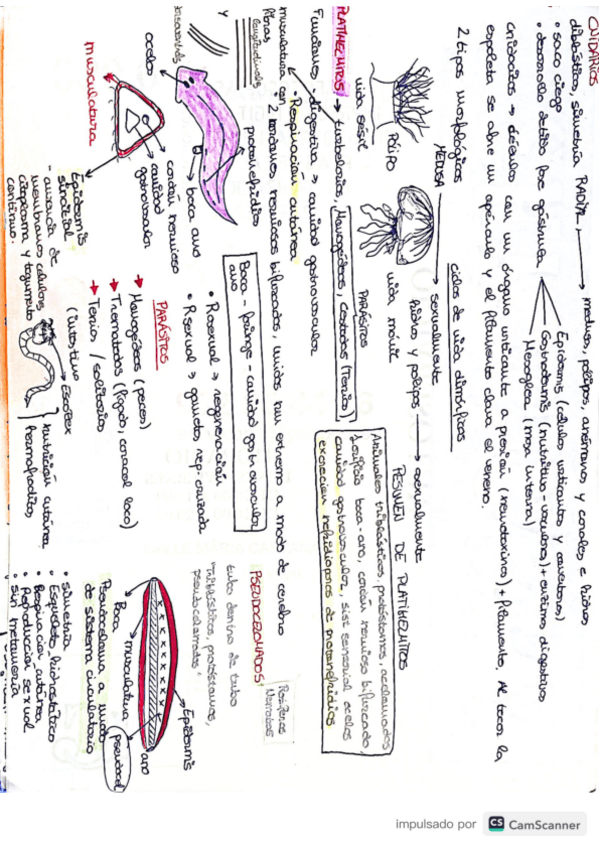 CNIDARIOS
diblástica, simetría RADIAL → medusas, pólipos, anémonas y corales e hidras
• saco ciego
• desarrollo detido fase gástrula
Epidermis (células urticantes y sensoriales)
Gastrodermis (nutritivo-vacuolas) + enzimas digestivo
Mesoglea (masa interna)
Cnidocitos → células con un órgano urticante a presión (neurotoxinas) + filamento. Al tocar la
espoleta se abre un opérculo y el filamento clava el veneno.
2 tipos morfológicos
ciclos de vida dimórficos
MEDUSA
sexualmente
hidras y pólipos → asexualmente
PÓLIPO
vida sésil
vida móvil
PLATIHELMITOS → turbelarios, Monogéneos, Cestodos (Tenias)
PARÁSITOS
RESUMEN DE PLATIHELMITOS
Animales triblásticos, protóstomos, acelomados
boca-ano, cordón nervioso bifurcado,
cavidad gastrovascular, sist sensorial ocelos
excrecion nefridioporos de protonefridios
Funciones - digestiva → cavidad gastrovascular
• Respiración cutánea
• 2 cordones nerviosos bifurcados, unidos en un extremo a modo de cerebro
musculatura con
fibras
longitudinales
y
transversales
protonefridios
boca ano
cordón nervioso
cavidad
gastrovascular
ocelos
musculatura
Epidermis
sincitial
- ausencia de
membranas celulares
citoplasma y tegumento
continuo.
Boca - faringe - cavidad gastrovascular
ano
• R asexual → regeneración
• R sexual → gametos, rep. cruzada
PARÁSITOS
→ Monogéneos (peces)
→ Trematodos (hígado, caracol loco)
→ Tenias / solitarias
(intestino
Escolex
nutrición cutánea
hermafroditas
PSEUDOCELOMADOS
Rotíferos
Nematodos
tubo dentro de tubo
triblásticos, protóstomos,
pseudocelomados
Epidermis
ano
pseudocel
musculatura
Boca
Pseudoceloma a modo
de sistema circulatorio
• simetría
• Esqueleto hidrostático
• Respiración cutánea
• Reproducción sexual
• sin metamería
impulsado por CS CamScanner